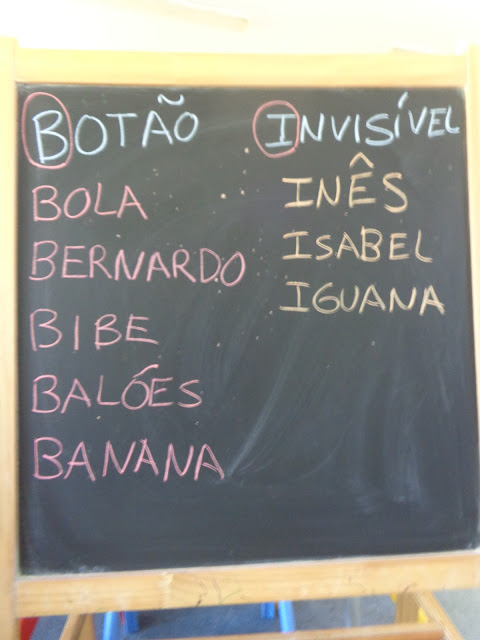 BOTÃO
BOLA
BERNARDO
BIBE
BALÓES
BANANA
INVISÍVEL
INÊS
ISABEL
IGUANA